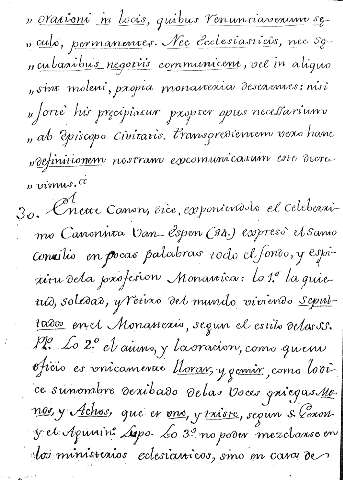 „ orationi in locis, quibus renunciaverunt sę-
„ culo, permanentes. Nec Ecclesiasticis, nec sę-
„ cularibus negotiis communicent, vel in aliquo
„ sint molesti, propria monasteria deserentes: nisi
„ forte his precipiatur propter opus necessarium
„ ab Episcopo Civitatis. transgredientem vero hanc
„ definitionem nostram excomunicatum esse decre-
„ vimus.
30. En este Canon, dice, exponiendolo el Celeberri-
mo Canonista Van-Espen (34.) expresó el santo
Concilio en pocas palabras todo el fondo, y espi-
ritu de la profesion Monastica: lo 1.º la quie-
tud, soledad, y retiro del mundo viviendo sepul-
tados en el Monasterio, según el estilo de las SS.
PP. Lo 2.º el aiuno, y la oracion, como que su
oficio es unicamente llorar, y gemir, como lo di-
ce su nombre deribado de las voces griegas Mo-
nos, y Achos, que es uno, y triste, segun S. Geron.
y el Lupo. Lo 3.º no poder mezclarse en
los ministerios eclesiasticos, sino en caso de